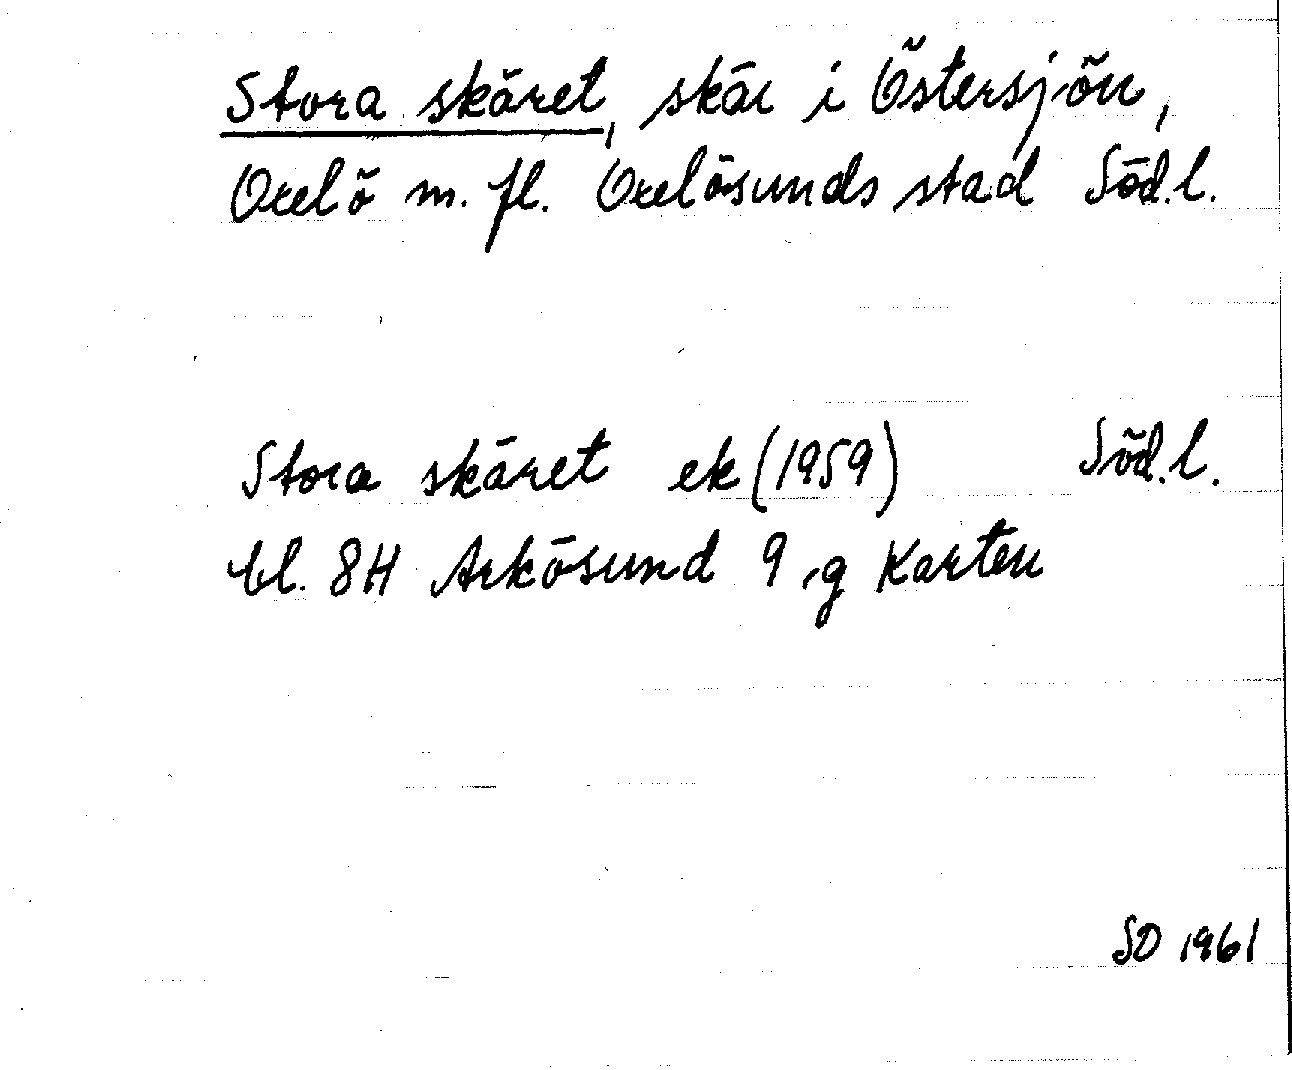 Stora skäret, skär i Östersjön,
Oxelö m. fl. Oxelösunds stad Söd.l.
Stora skäret ek (1959) Söd.l.
bl. 8H Arkösund 9 g Karten
SD 1961